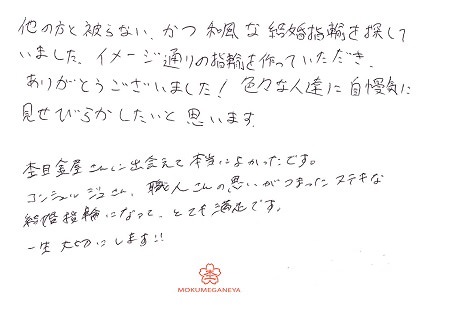 他の方と被らない、かつ和風な結婚指輪を探して
いました。イメージ通りの指輪を作っていただき、
ありがとうございました！色々な人達に自慢気に
見せびらかしたいと思います。
杢目金屋さんに出会えて本当によかったです。
コンシェルジュさん、職人さんの思いがつまったステキな
結婚指輪になって、とても満足です。
一生大切にします!!
MOKUMEGANEYA